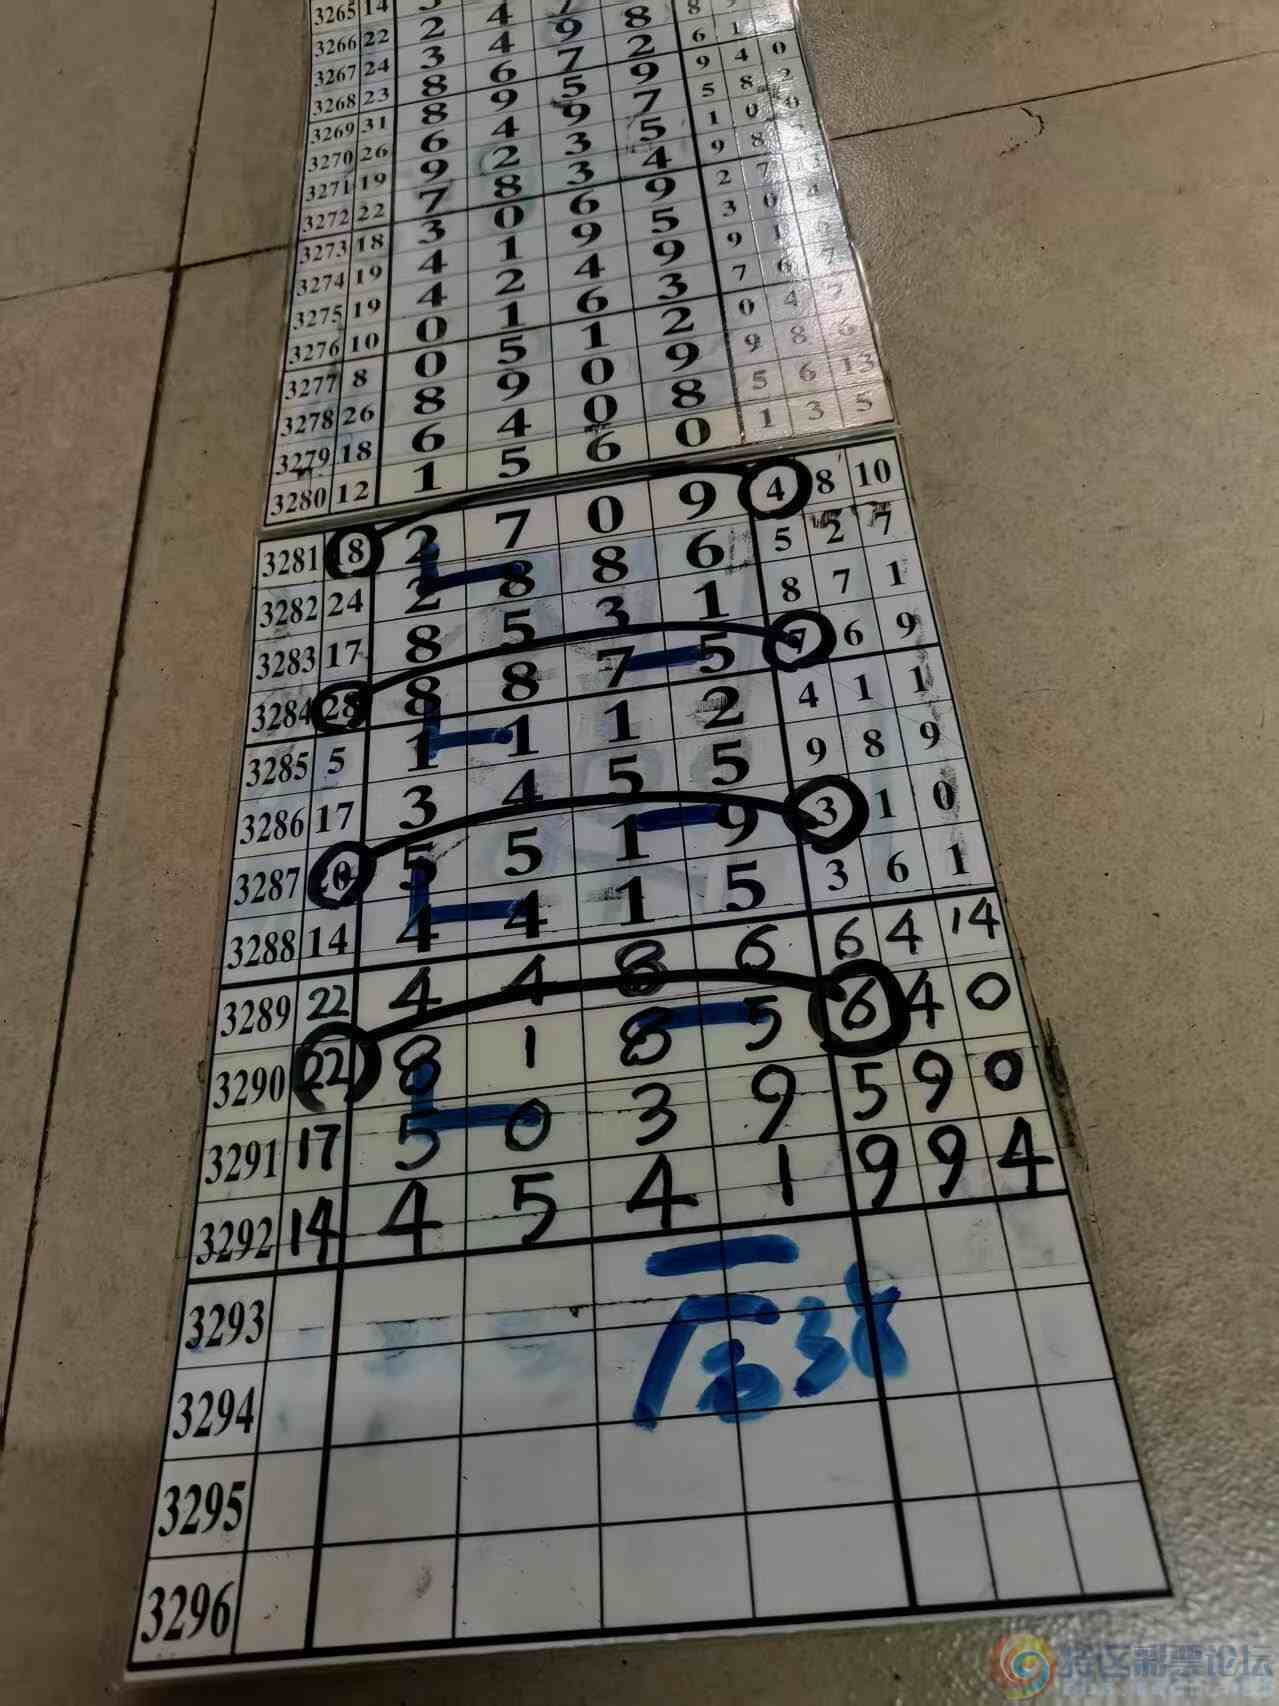 3265 14 3 4 7 8
3266 22 2 4 9 8 6 1
3267 24 3 4 7 2 9 4 0
3268 23 8 6 5 9 5 8 2
3269 31 8 9 9 7 1 0 0
3270 26 6 4 3 5 9 8
3271 19 9 2 3 4 2 7
3272 22 7 8 6 9 3 6 4
3273 18 3 0 9 5 9 1
3274 19 4 1 4 9 7 6 7
3275 19 4 2 6 3 0 4 7
3276 10 0 1 1 2 9 8 6
3277 8 0 5 0 9 5 6 13
3278 26 8 9 0 8 1 3 5
3279 18 6 4 6 0
3280 12 1 5
3281 18 2 7 0 9 4 8 10
3282 24 2 8 8 6 5 2 7
3283 17 8 5 3 1 8 7 1
3284 28 8 8 7 5 7 6 9
3285 5 1 1 1 2 4 1 1
3286 17 3 4 5 5 9 8 9
3287 20 5 5 1 9 3 1 0
3288 14 4 4 1 5 3 6 1
3289 22 4 4 8 6 6 4 14
3290 22 8 1 8 5 6 4 0
3291 17 5 0 3 9 5 9 0
3292 14 4 5 4 1 9 9 4
3293
338
3294
3295
3296
特区彩票论坛